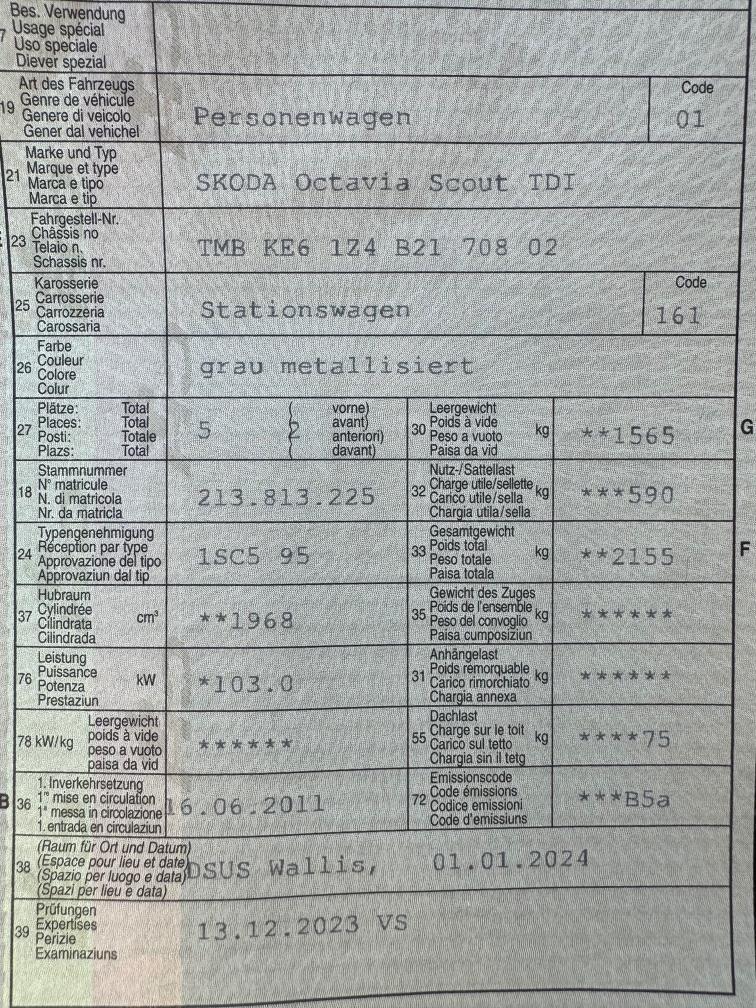 Bes. Verwendung
7 Usage spécial
Uso speciale
Diever spezial
Art des Fahrzeugs Code
19 Genre de véhicule
Genere di veicolo Personenwagen 01
Gener dal vehichel
Marke und Typ
21 Marque et type
Marca e tipo SKODA Octavia Scout TDI
Marca e tip
Fahrgestell-Nr.
23 Châssis no
Telaio n. TMB KE6 1Z4 B21 708 02
Schassis nr.
Karosserie Code
25 Carrosserie
Carrozzeria Stationswagen 161
Carossaria
Farbe
26 Couleur grau metallisiert
Colore
Colur
Plätze: Total vorne) Leergewicht
27 Places: Total 5 ( 2 avant) 30 Poids à vide kg **1565 G
Posti: Totale anteriori) Peso a vuoto
Plazs: Total davant) Paisa da vid
Stammnummer Nutz-/Sattellast
18 N° matricule 213.813.225 32 Charge utile/sellette kg ***590
N. di matricola Carico utile/sella
Nr. da matricla Chargia utila/sella
Typengenehmigung Gesamtgewicht
24 Réception par type 1SC5 95 33 Poids total kg **2155 F
Approvazione del tipo Peso totale
Approvaziun dal tip Paisa totala
Hubraum Gewicht des Zuges
37 Cylindrée cm³ **1968 35 Poids de l'ensemble kg ******
Cilindrata Peso del convoglio
Cilindrada Paisa cumposiziun
Leistung Anhängelast
76 Puissance kW *103.0 31 Poids remorquable kg ******
Potenza Carico rimorchiato
Prestaziun Chargia annexa
Leergewicht Dachlast
78 kW/kg poids à vide ****** 55 Charge sur le toit kg ****75
peso a vuoto Carico sul tetto
paisa da vid Chargia sin il tetg
1. Inverkehrsetzung Emissionscode
B 36 1re mise en circulation 16.06.2011 72 Code émissions ***B5a
1a messa in circolazione Codice emissioni
1. entrada en circulaziun Code d'emissiuns
(Raum für Ort und Datum)
38 (Espace pour lieu et date) DSUS Wallis, 01.01.2024
(Spazio per luogo e data)
(Spazi per lieu e data)
Prüfungen
39 Expertises 13.12.2023 VS
Perizie
Examinaziuns